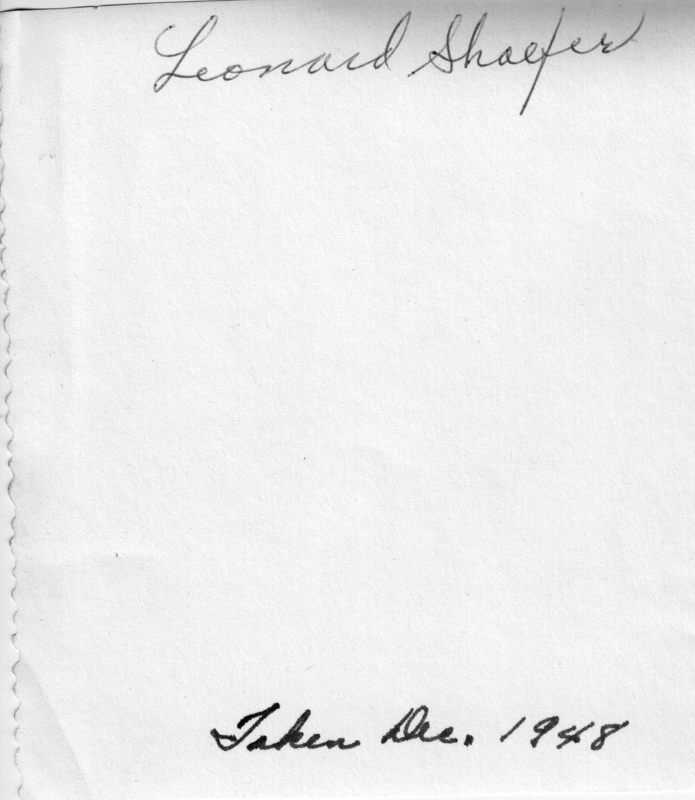 Leonard Shaefer
Taken Dec. 1948